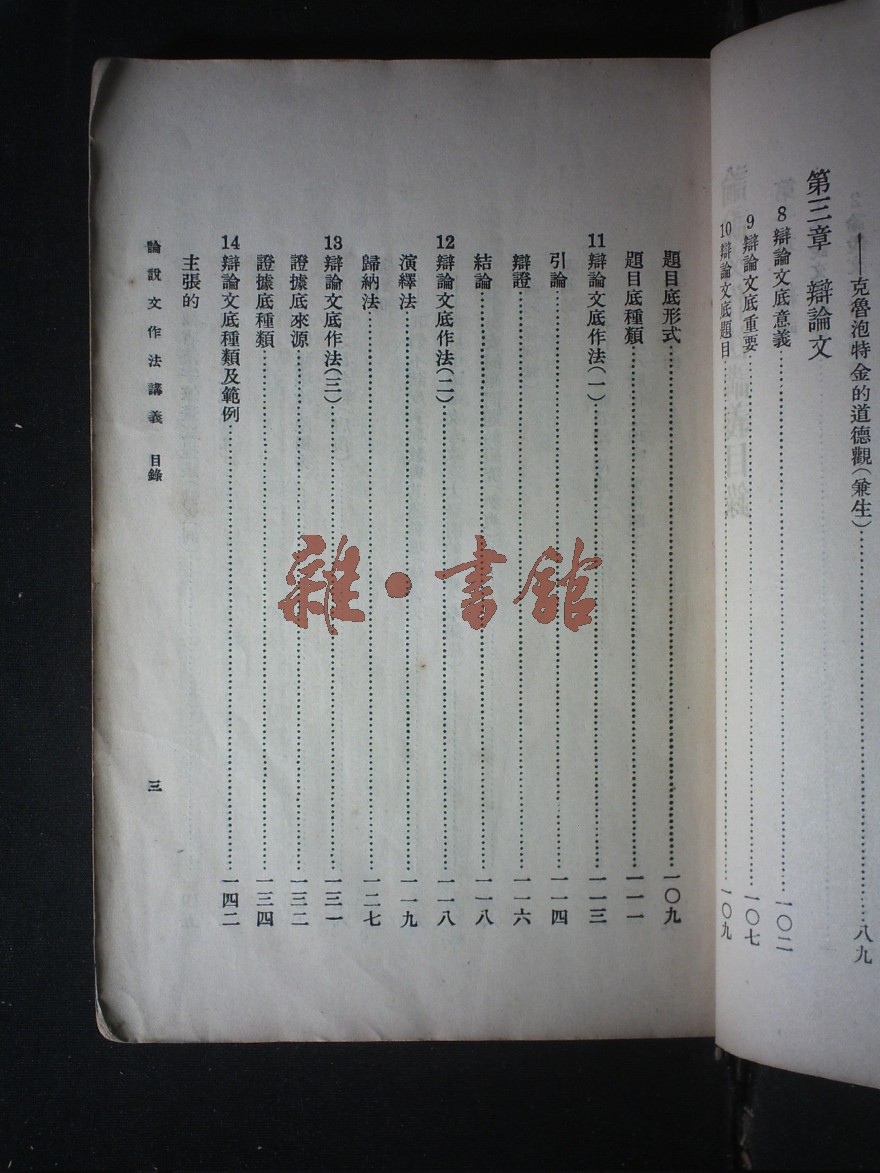 ——克魯泡特金的道德觀(兼生)……八九
第三章　辯論文
8 辯論文底意義……一〇二
9 辯論文底重要……一〇七
10 辯論文底題目……一〇九
題目底形式……一〇九
題目底種類……一一一
11 辯論文底作法(一)……一一三
引論……一一四
辯證……一一六
結論……一一八
12 辯論文底作法(二)……一一八
演繹法……一一九
歸納法……一二七
13 辯論文底作法(三)……一三一
證據底來源……一三二
證據底種類……一三四
14 辯論文底種類及範例……一四二
主張的
論說文作法講義　目錄
三
雜·書館